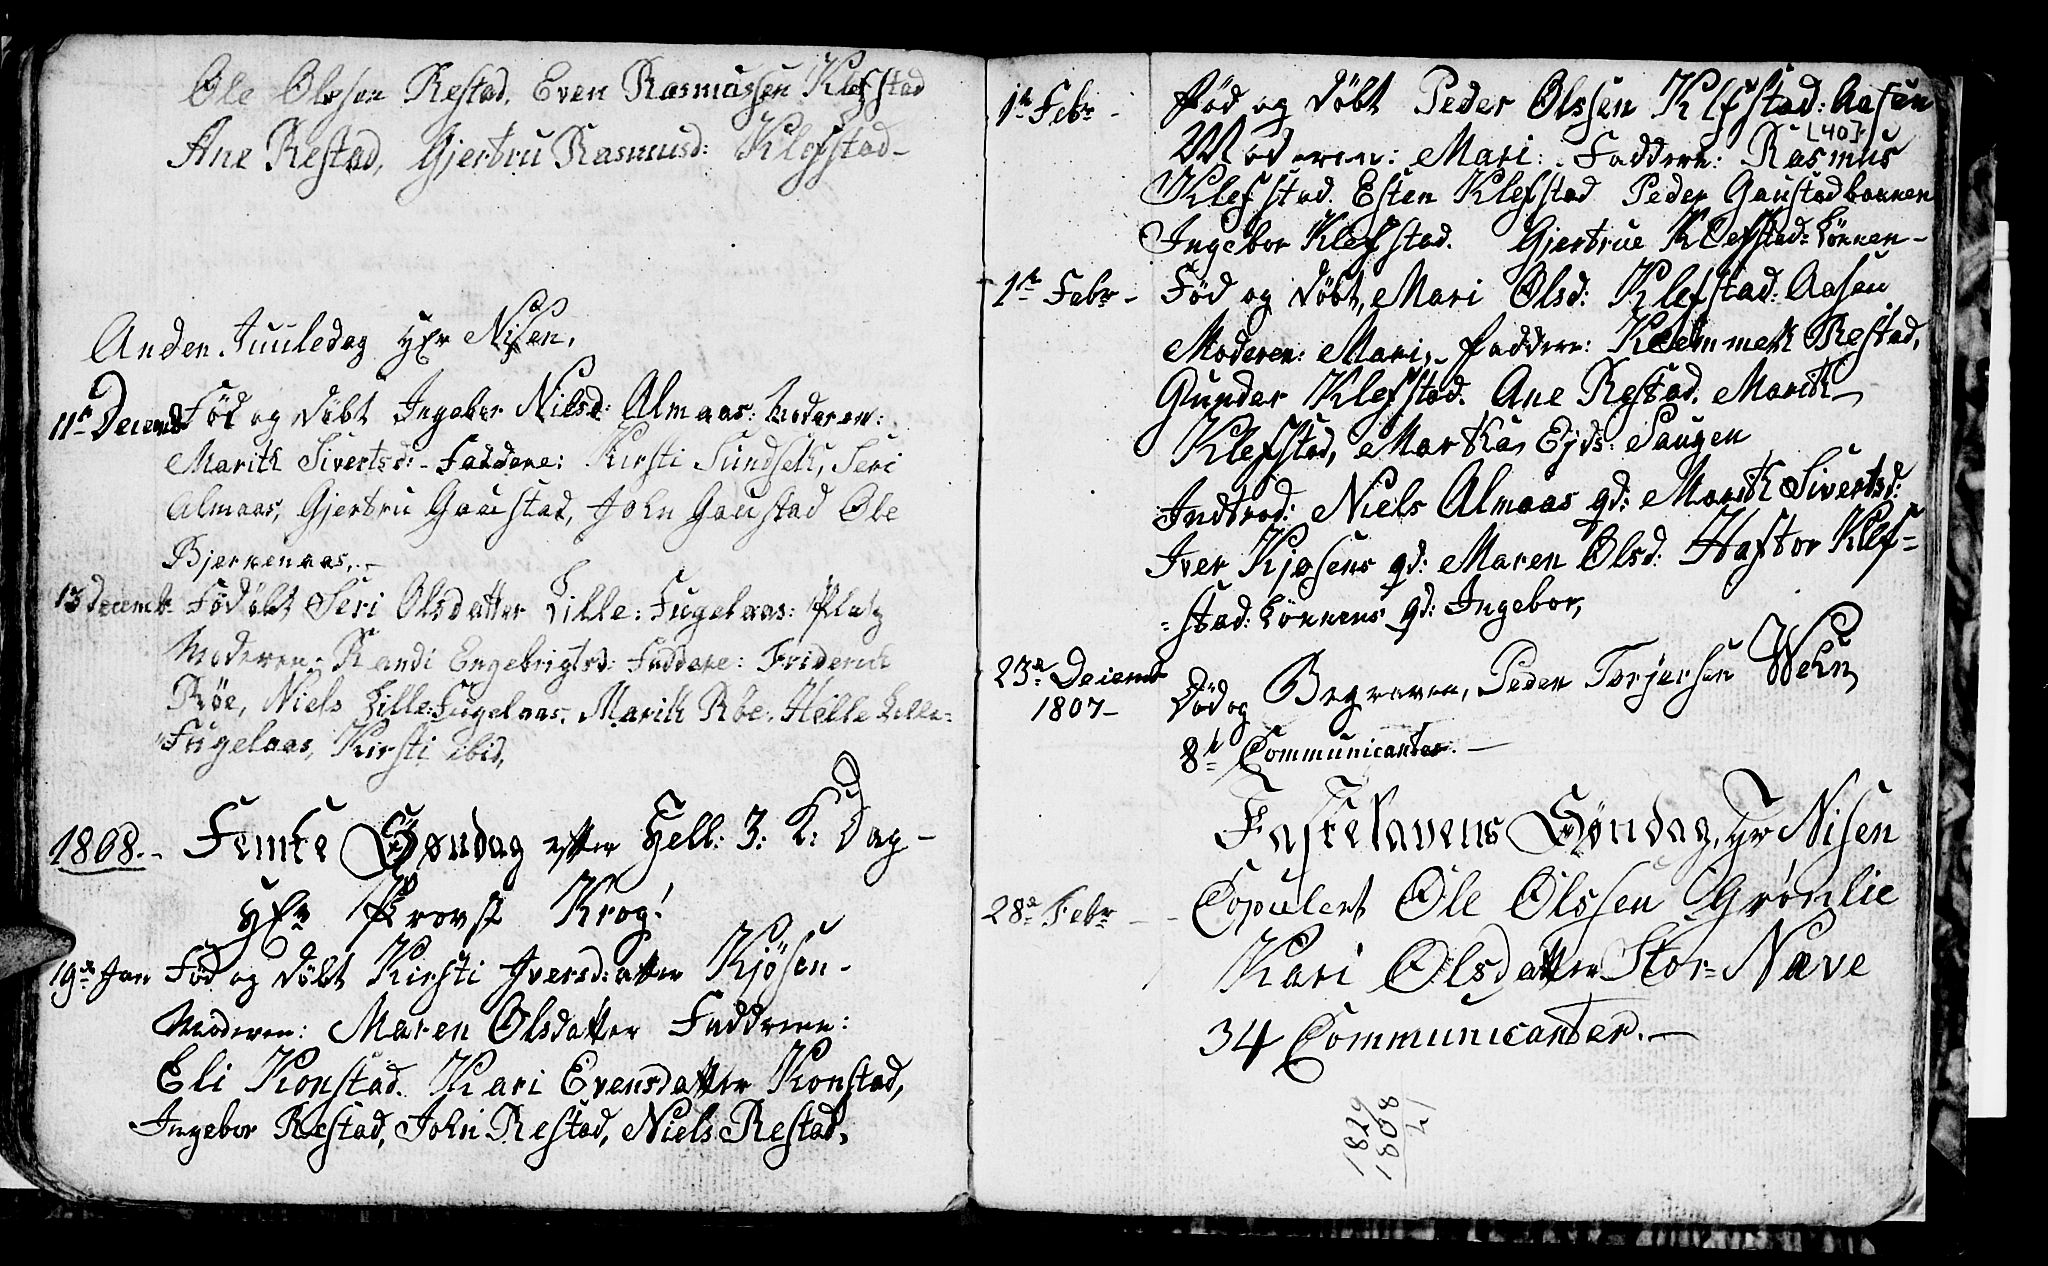 Ole Olssen Restad. Even Rasmussen Klefstad
Ane Restad, Gjertru Rasmusd: Klefstad-
Anden Juuledag Hr Nisen,
11te Decemb Fød og døbt Ingebor Nilsd: Almaas: Moderen:
Marith Sivertsd:- Faddere: Kirsti Sundseth, Seri
Almaas, Gjertru Gaustad, John Gaustad Ole
Bjerkenaas,.-
13 Decemb Fødøbt Seri Olsdatter Lille: Fugelaas: Platz
Moderen: Randi Engebrigtsd: Faddere: Friderich
Røe, Niels Lille: Fugelaas. Marith Røe. Helle Lille=
=Fugelaas, Kirsti ibid,
1808.- Femte Søndag efter Hell: 3: K: Dag-
Hr Provst Krog!
19de Jan Fød og døbt Kirsti Iversd:atter Kjøsen-
Moderen: Maren Olsdatter Faddrene:
Eli Konstad. Kari Evensdatter Konstad,
Ingebor Restad, John Restad, Niels Restad,
1te Febr - Fød og døbt Peder Olssen Klfstad: Aasen
[40]
Moderen: Mari: Faddere: Rasmus
Klefstad. Esten Klefstad Peder Gaustadbakken
Ingebor Klefstad. Gjertrue Klefstad: Løkken-
1te Febr - Fød og døbt, Mari Olsd: Klefstad: Aasen
Moderen: Mari,- Faddere: Klemmeth Restad,
Gunder Klefstad. Ane Restad. Marith-
Klefstad, Martha, Ejds: Haugen
Indtrod: Niels Almaas qd: Marith Sivertsd:
Iver Kjøsens qd: Maren Olsd: Haftor Klef=
=stad: Løkkens qd: Ingebor,
23de Decemb Død og Begraven, Peder Torjersen Wehn
1807-
8te Communicanter.-
Fastelavens Søndag, Hr Nisen
28de Febr - - Copulert Ole Olssen Grønlie
Kari Olsdatter Stor=Næve
34 Communicanter.-
1829
1808
21